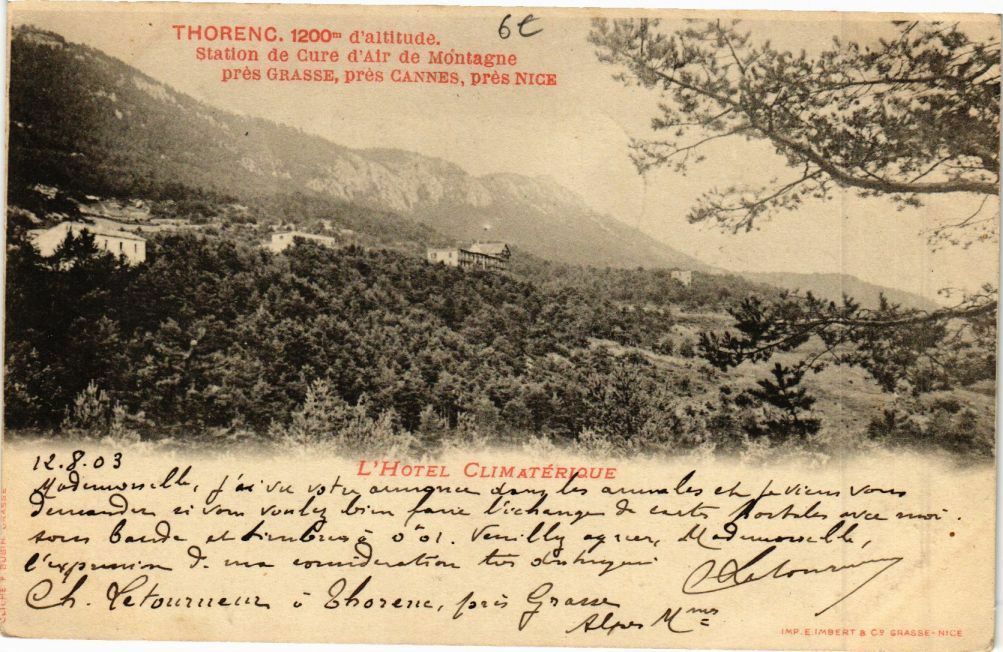 6E
THORENC. 1200m d'altitude.
Station de Cure d'Air de Montagne
près GRASSE, près CANNES, près NICE
L'HOTEL CLIMATÉRIQUE
12.8.03
Mademoiselle, j'ai vu votre annonce dans les annales et je viens vous
demander si vous voulez bien faire l'échange de cartes postales avec moi.
sous bande et timbres à 0'01. Veuillez agréer, Mademoiselle,
l'expression de ma considération très distinguée
Ch. Letourneur à Thorenc, près Grasse
Alpes Mmes
Letourneur
CLICHÉ F RUBIN GRASSE
IMP. E. IMBERT & Co GRASSE-NICE